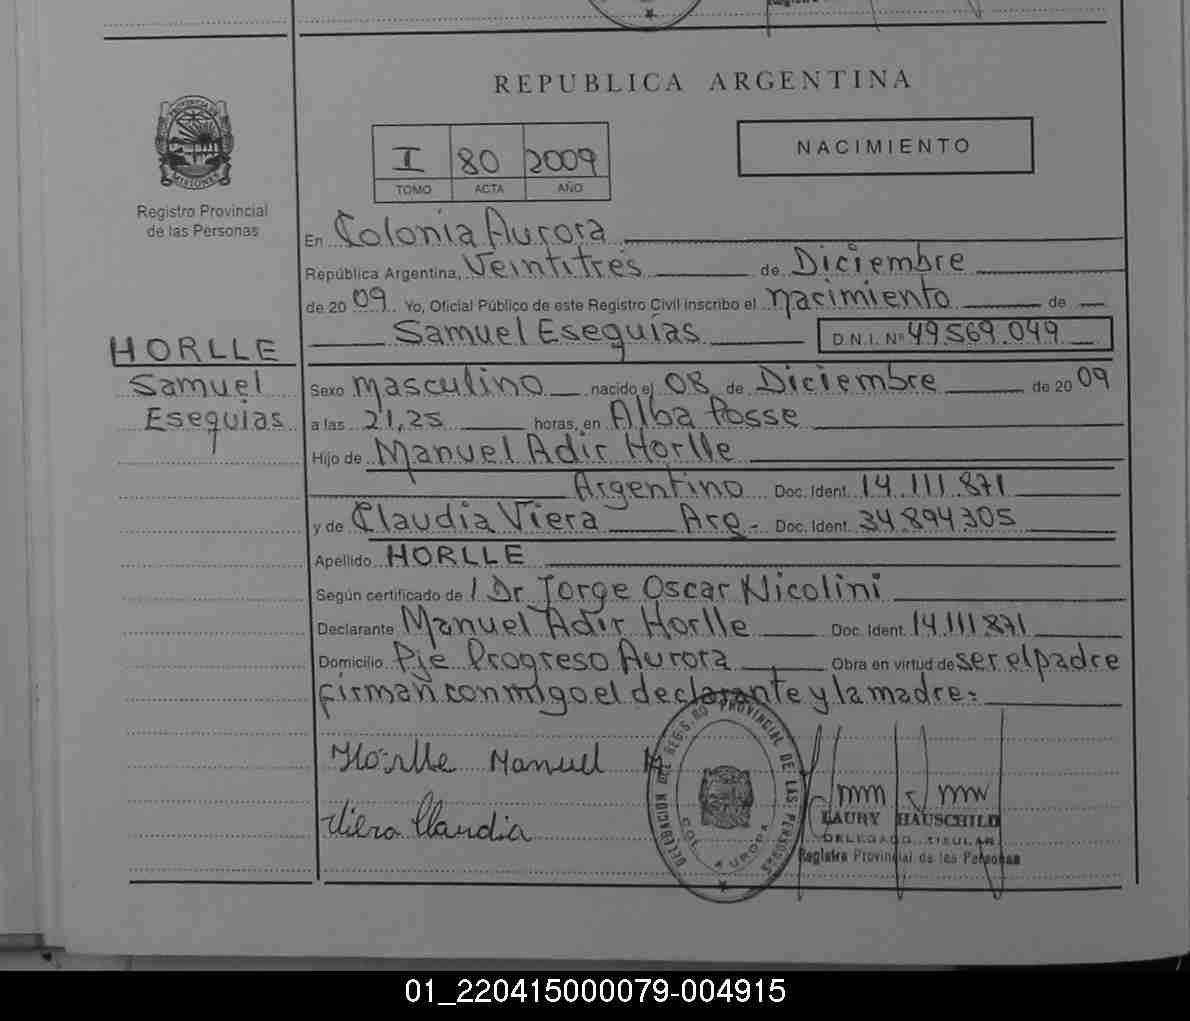 REPUBLICA ARGENTINA
PROVINCIA DE
MISIONES
Registro Provincial
de las Personas
I 80 2009
TOMO ACTA AÑO
NACIMIENTO
En Colonia Aurora
República Argentina, Veintitrés de Diciembre
de 20 09 Yo, Oficial Público de este Registro Civil inscribo el nacimiento de
Samuel Esequías D.N.I. Nº 49.569.049
HORLLE
Samuel
Esequias
Sexo masculino nacido el 08 de Diciembre de 20 09
a las 21,25 horas, en Alba Posse
Hijo de Manuel Adir Horlle
Argentino Doc. Ident. 14.111.871
y de Claudia Viera Arg.- Doc. Ident. 34.894.305
Apellido HORLLE
Según certificado de / Dr Jorge Oscar Nicolini
Declarante Manuel Adir Horlle Doc. Ident. 14.111.871
Domicilio Pje Progreso Aurora Obra en virtud de ser el padre
firman conmigo el declarante y la madre.-
Horlle Manuel A
Viera Claudia
DELEGACION DEL REGISTRO PROVINCIAL DE LAS PERSONAS
COL. AURORA
LAURY HAUSCHILD
DELEGADO TITULAR
Registro Provincial de las Personas
01_220415000079-004915